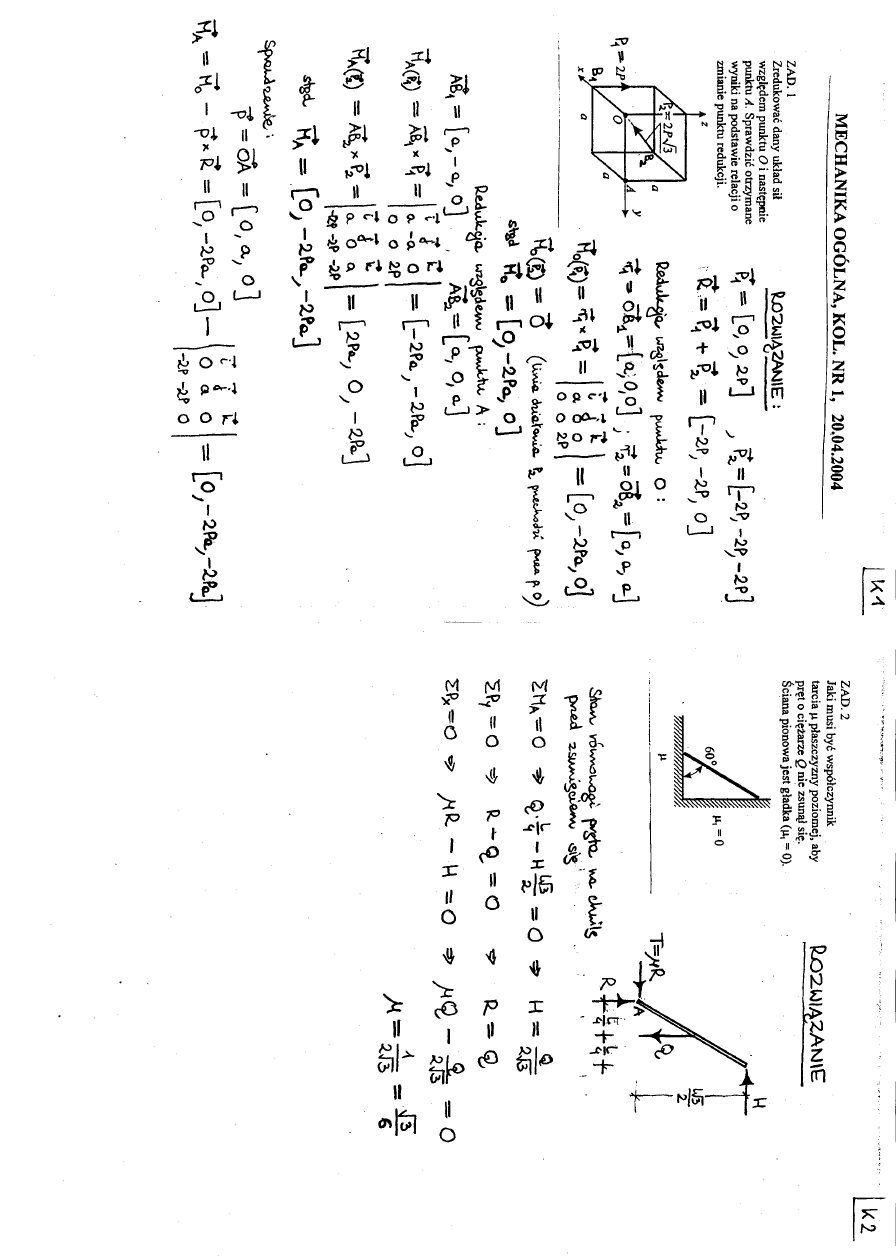 MECHANIKA OGÓLNA, KOL. NR 1, 20.04.2004
K1
ZAD. 1
Zredukować dany układ sił
względem punktu O i następnie
punktu A. Sprawdzić otrzymane
wyniki na podstawie relacji o
zmianie punktu redukcji.
P₁ = 2P
B₁
x
a
O
z
P₂=2P√3
B₂
a
A
a
y
ROZWIĄZANIE:
P⃗₁ = [0, 0, 2P] , P⃗₂ = [-2P, -2P, -2P]
R⃗ = P⃗₁ + P⃗₂ = [-2P, -2P, 0]
Redukcja względem punktu O:
r⃗₁ = O⃗B₁ = [a, 0, 0] ; r⃗₂ = O⃗B₂ = [a, a, a]
M⃗₀(P⃗₁) = r⃗₁ × P⃗₁ = | i⃗ j⃗ k⃗ ; a 0 0 ; 0 0 2P | = [0, -2Pa, 0]
M⃗₀(P⃗₂) = 0⃗ (linia działania P₂ przechodzi przez p. O)
stąd M⃗₀ = [0, -2Pa, 0]
Redukcja względem punktu A:
A⃗B₁ = [a, -a, 0] , A⃗B₂ = [a, 0, a]
M⃗A(P⃗₁) = A⃗B₁ × P⃗₁ = | i⃗ j⃗ k⃗ ; a -a 0 ; 0 0 2P | = [-2Pa, -2Pa, 0]
M⃗A(P⃗₂) = A⃗B₂ × P⃗₂ = | i⃗ j⃗ k⃗ ; a 0 a ; -2P -2P -2P | = [2Pa, 0, -2Pa]
stąd M⃗A = [0, -2Pa, -2Pa]
Sprawdzenie:
p⃗ = O⃗A = [0, a, 0]
M⃗A = M⃗₀ - p⃗ × R⃗ = [0, -2Pa, 0] - | i⃗ j⃗ k⃗ ; 0 a 0 ; -2P -2P 0 | = [0, -2Pa, -2Pa]
K2
ZAD. 2
Jaki musi być współczynnik
tarcia μ płaszczyzny poziomej, aby
pręt o ciężarze Q nie zsunął się.
Ściana pionowa jest gładka (μ₁ = 0).
60°
μ₁ = 0
μ
ROZWIĄZANIE
H
L√3/2
Q
A
T=μR
R
L/4 L/4
Stan równowagi pręta na chwilę
przed zsunięciem się:
ΣMA=0 ⇒ Q·L/4 - H L√3/2 = 0 ⇒ H = Q/2√3
ΣPy=0 ⇒ R-Q=0 ⇒ R=Q
ΣPx=0 ⇒ μR - H = 0 ⇒ μQ - Q/2√3 = 0
μ = 1/2√3 = √3/6